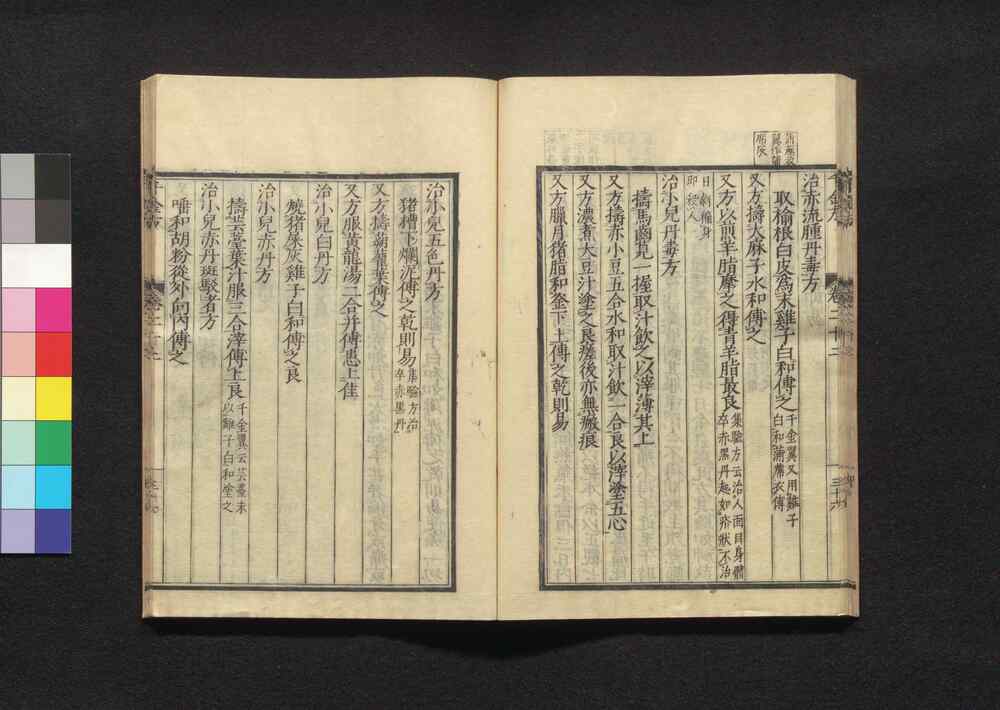 治赤流腫丹毒方
取榆根白皮為末雞子白和傅之千金翼又用雞子白和蒲席灰傅
又方擣大麻子水和傅之
又方以煎羊脂摩之得青羊脂最良集驗方云治人面目身體卒赤黑丹起如疥狀不治
日劇徧身即殺人
治小兒丹毒方
擣馬齒莧一握取汁飲之以滓薄其上
又方擣赤小豆五合水和取汁飲一合良以滓塗五心
又方濃煮大豆汁塗之良瘥後亦無瘢痕
又方臘月猪脂和釜下土傅之乾則易
治小兒五色丹方
猪槽下爛泥傅之乾則易集驗方治卒赤黑丹
又方擣蒴藋葉傅之
又方服黃龍湯二合并傅患上佳
治小兒白丹方
燒猪屎灰雞子白和傅之良
治小兒赤丹方
擣芸薹葉汁服三合滓傅上良千金翼云芸薹末以雞子白和塗之
治小兒赤丹斑駁者方
唾和胡粉從外向內傅之